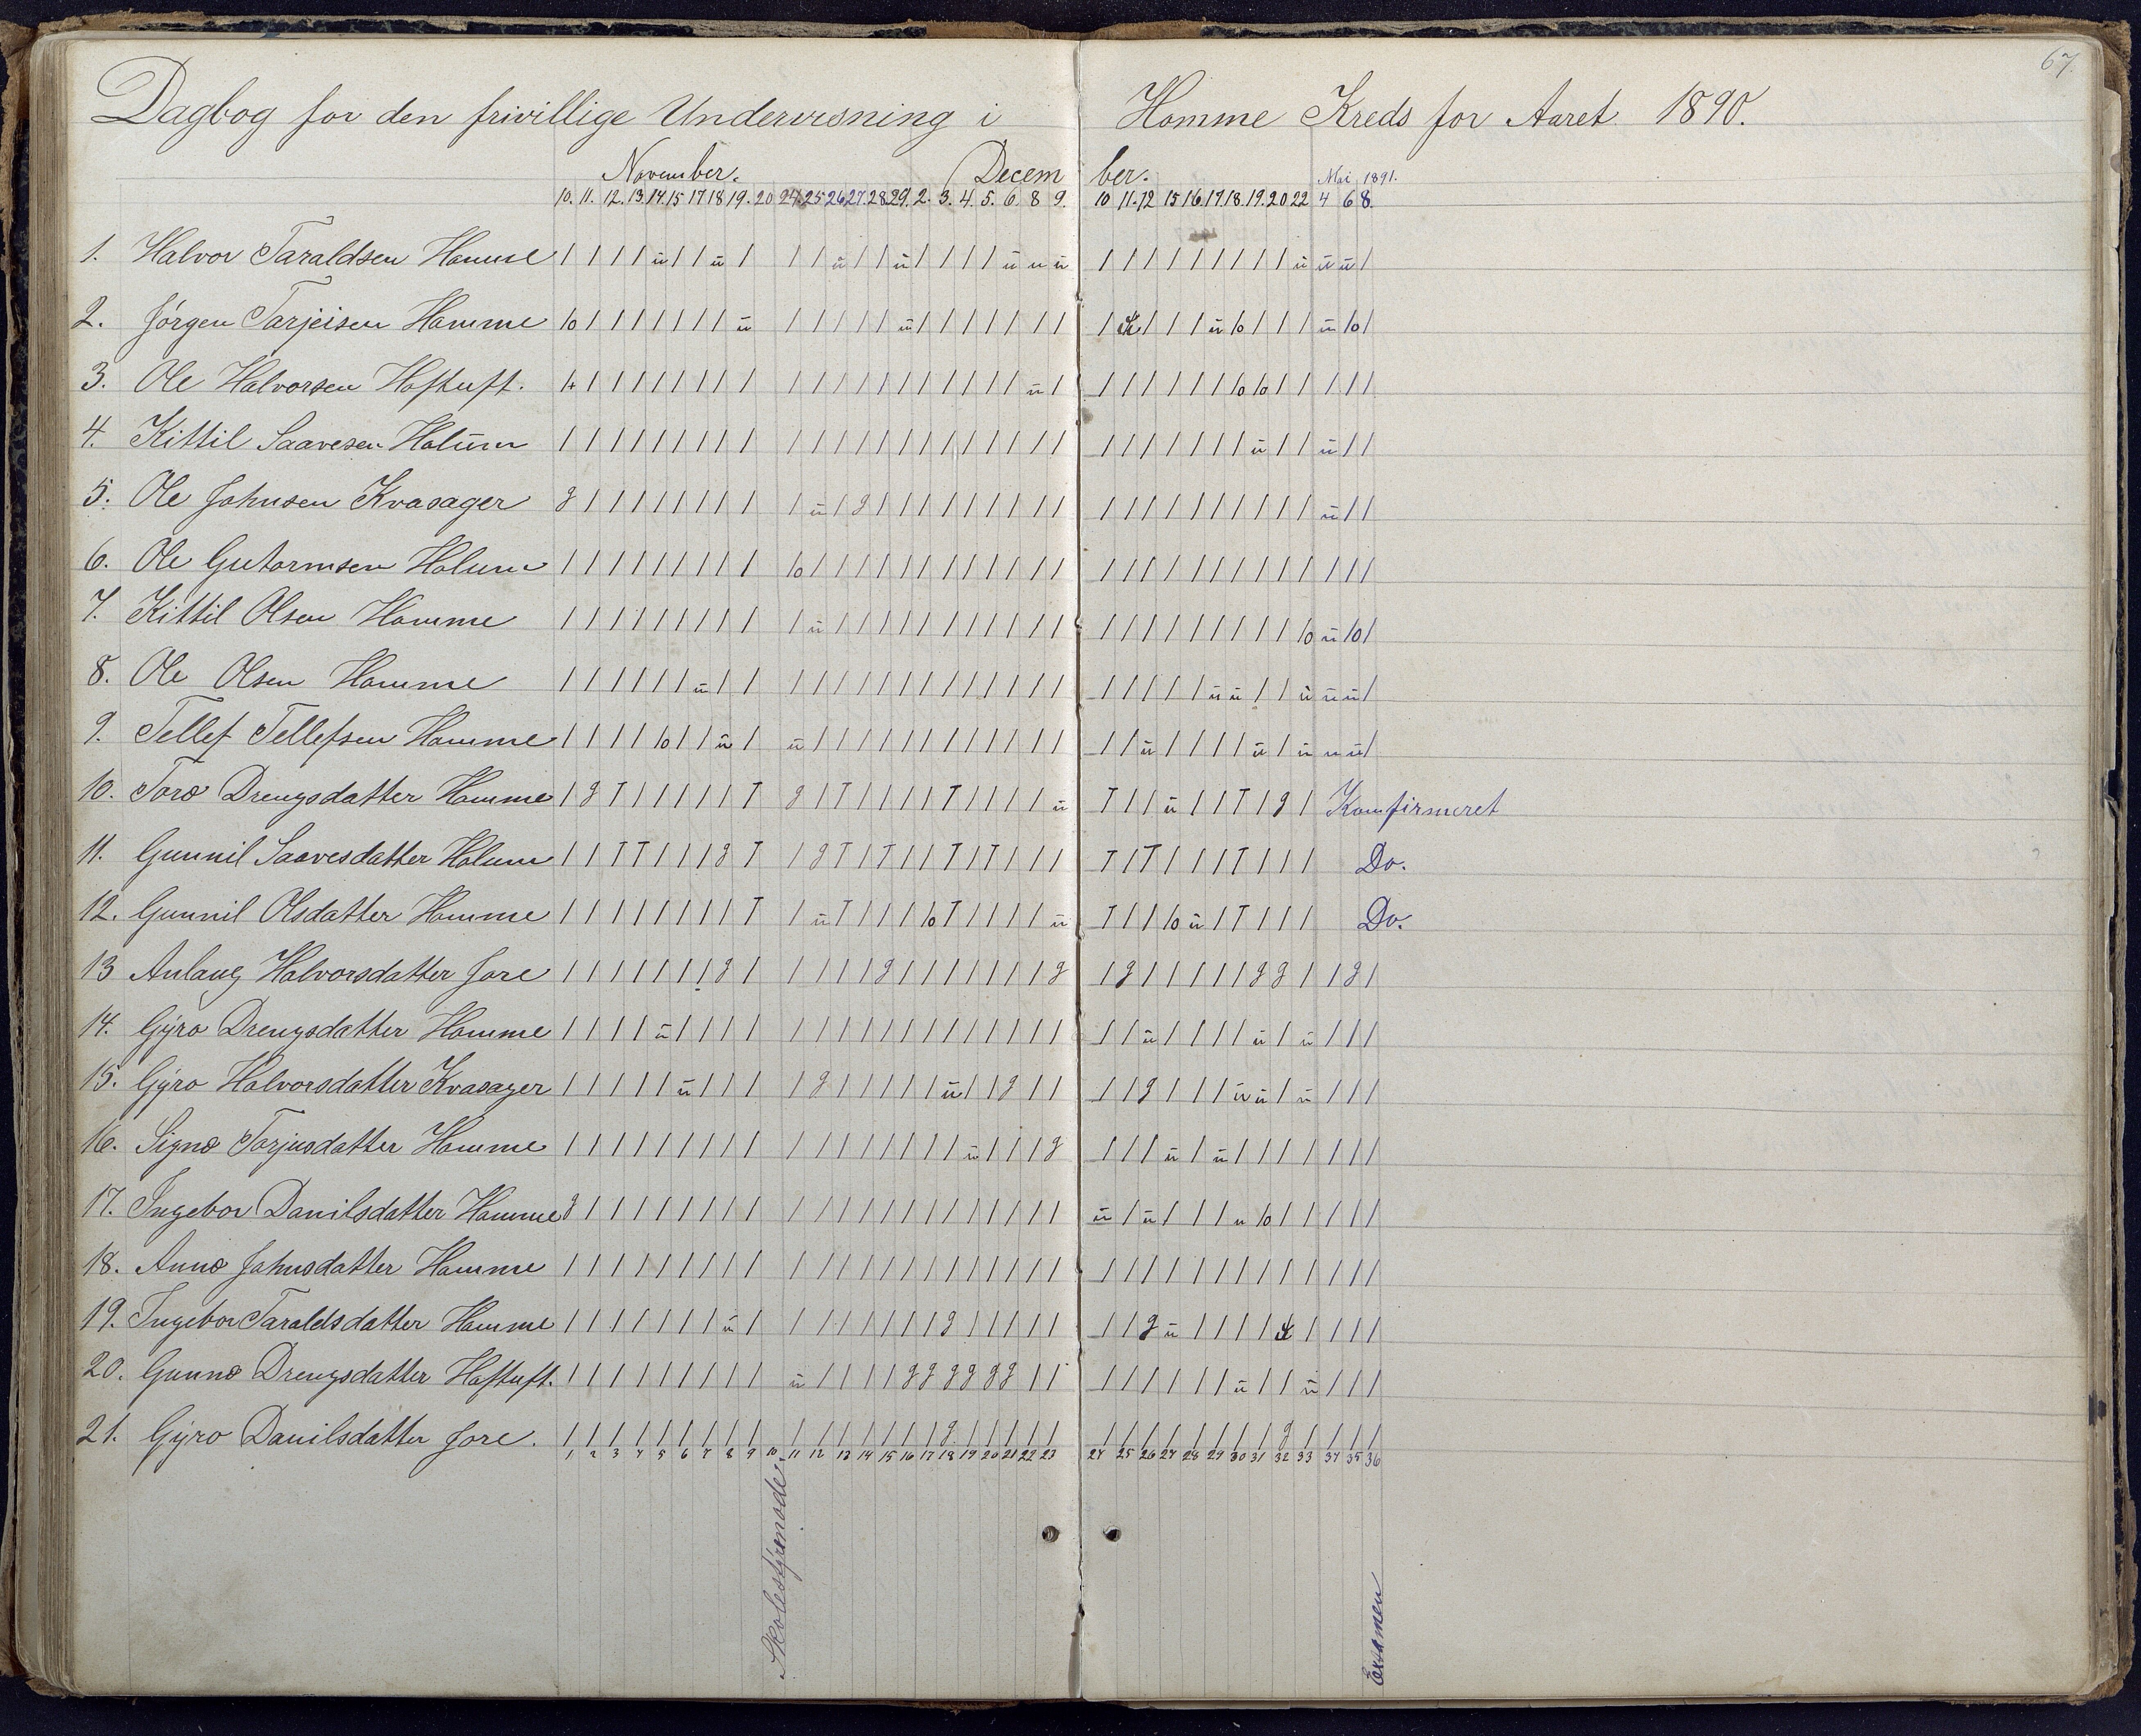 67.
Dagbog for den frivillige Undervisning i Homme Kreds for Aaret 1890.
November. December. Mai 1891.
10. 11. 12. 13. 14. 15 17 18 19. 20 24. 25 26 27. 28 29. 2. 3. 4. 5. 6. 8 9. 10 11. 12 15 16. 17. 18. 19. 20 22 4 6 8.
1. Halvor Taraldsen Homme
2. Jørgen Tarjeisen Homme
3. Ole Halvorsen Hoftuft.
4. Kittil Saavesen Holum
5. Ole Johnsen Kvasager
6. Ole Gutormsen Holum
7. Kittil Olsen Homme
8. Ole Olsen Homme
9. Tellef Tellefsen Homme
10. Torø Drengsdatter Homme Komfirmeret
11. Gunnil Saavesdatter Holum Do.
12. Gunnil Olsdatter Homme Do.
13 Aslaug Halvorsdatter Jore
14. Gyro Drengsdatter Homme
15. Gyro Halvorsdatter Kvasager
16. Signe Torjusdatter Homme
17. Ingebor Danilsdatter Homme
18. Anne Johnsdatter Homme
19. Ingebor Taraldsdatter Homme
20. Gunne Drengsdatter Hoftuft.
21. Gyro Danilsdatter Jore.
1 2 3 4 5 6 7 8 9 10 11 12 13 14 15 16 17 18 19 20 21 22 23 24 25 26 27 28 29 30 31 32 33 34 35 36
Skolestyremøde.
Examen